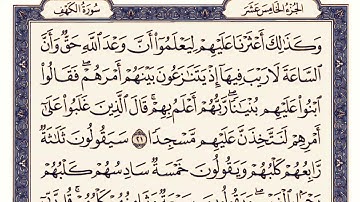 سُورَةُ الكَهْفِ الجُزْءُ الخَامِسَ عَشَرَ
وَكَذَٰلِكَ أَعْثَرْنَا عَلَيْهِمْ لِيَعْلَمُوٓا۟ أَنَّ وَعْدَ ٱللَّهِ حَقٌّ وَأَنَّ
ٱلسَّاعَةَ لَا رَيْبَ فِيهَآ إِذْ يَتَنَٰزَعُونَ بَيْنَهُمْ أَمْرَهُمْ ۖ فَقَالُوا۟
ٱبْنُوا۟ عَلَيْهِم بُنْيَٰنًا ۖ رَّبُّهُمْ أَعْلَمُ بِهِمْ ۚ قَالَ ٱلَّذِينَ غَلَبُوا۟ عَلَىٰٓ
أَمْرِهِمْ لَنَتَّخِذَنَّ عَلَيْهِم مَّسْجِدًا ٢١ سَيَقُولُونَ ثَلَٰثَةٌ
رَّابِعُهُمْ كَلْبُهُمْ وَيَقُولُونَ خَمْسَةٌ سَادِسُهُمْ كَلْبُهُمْ